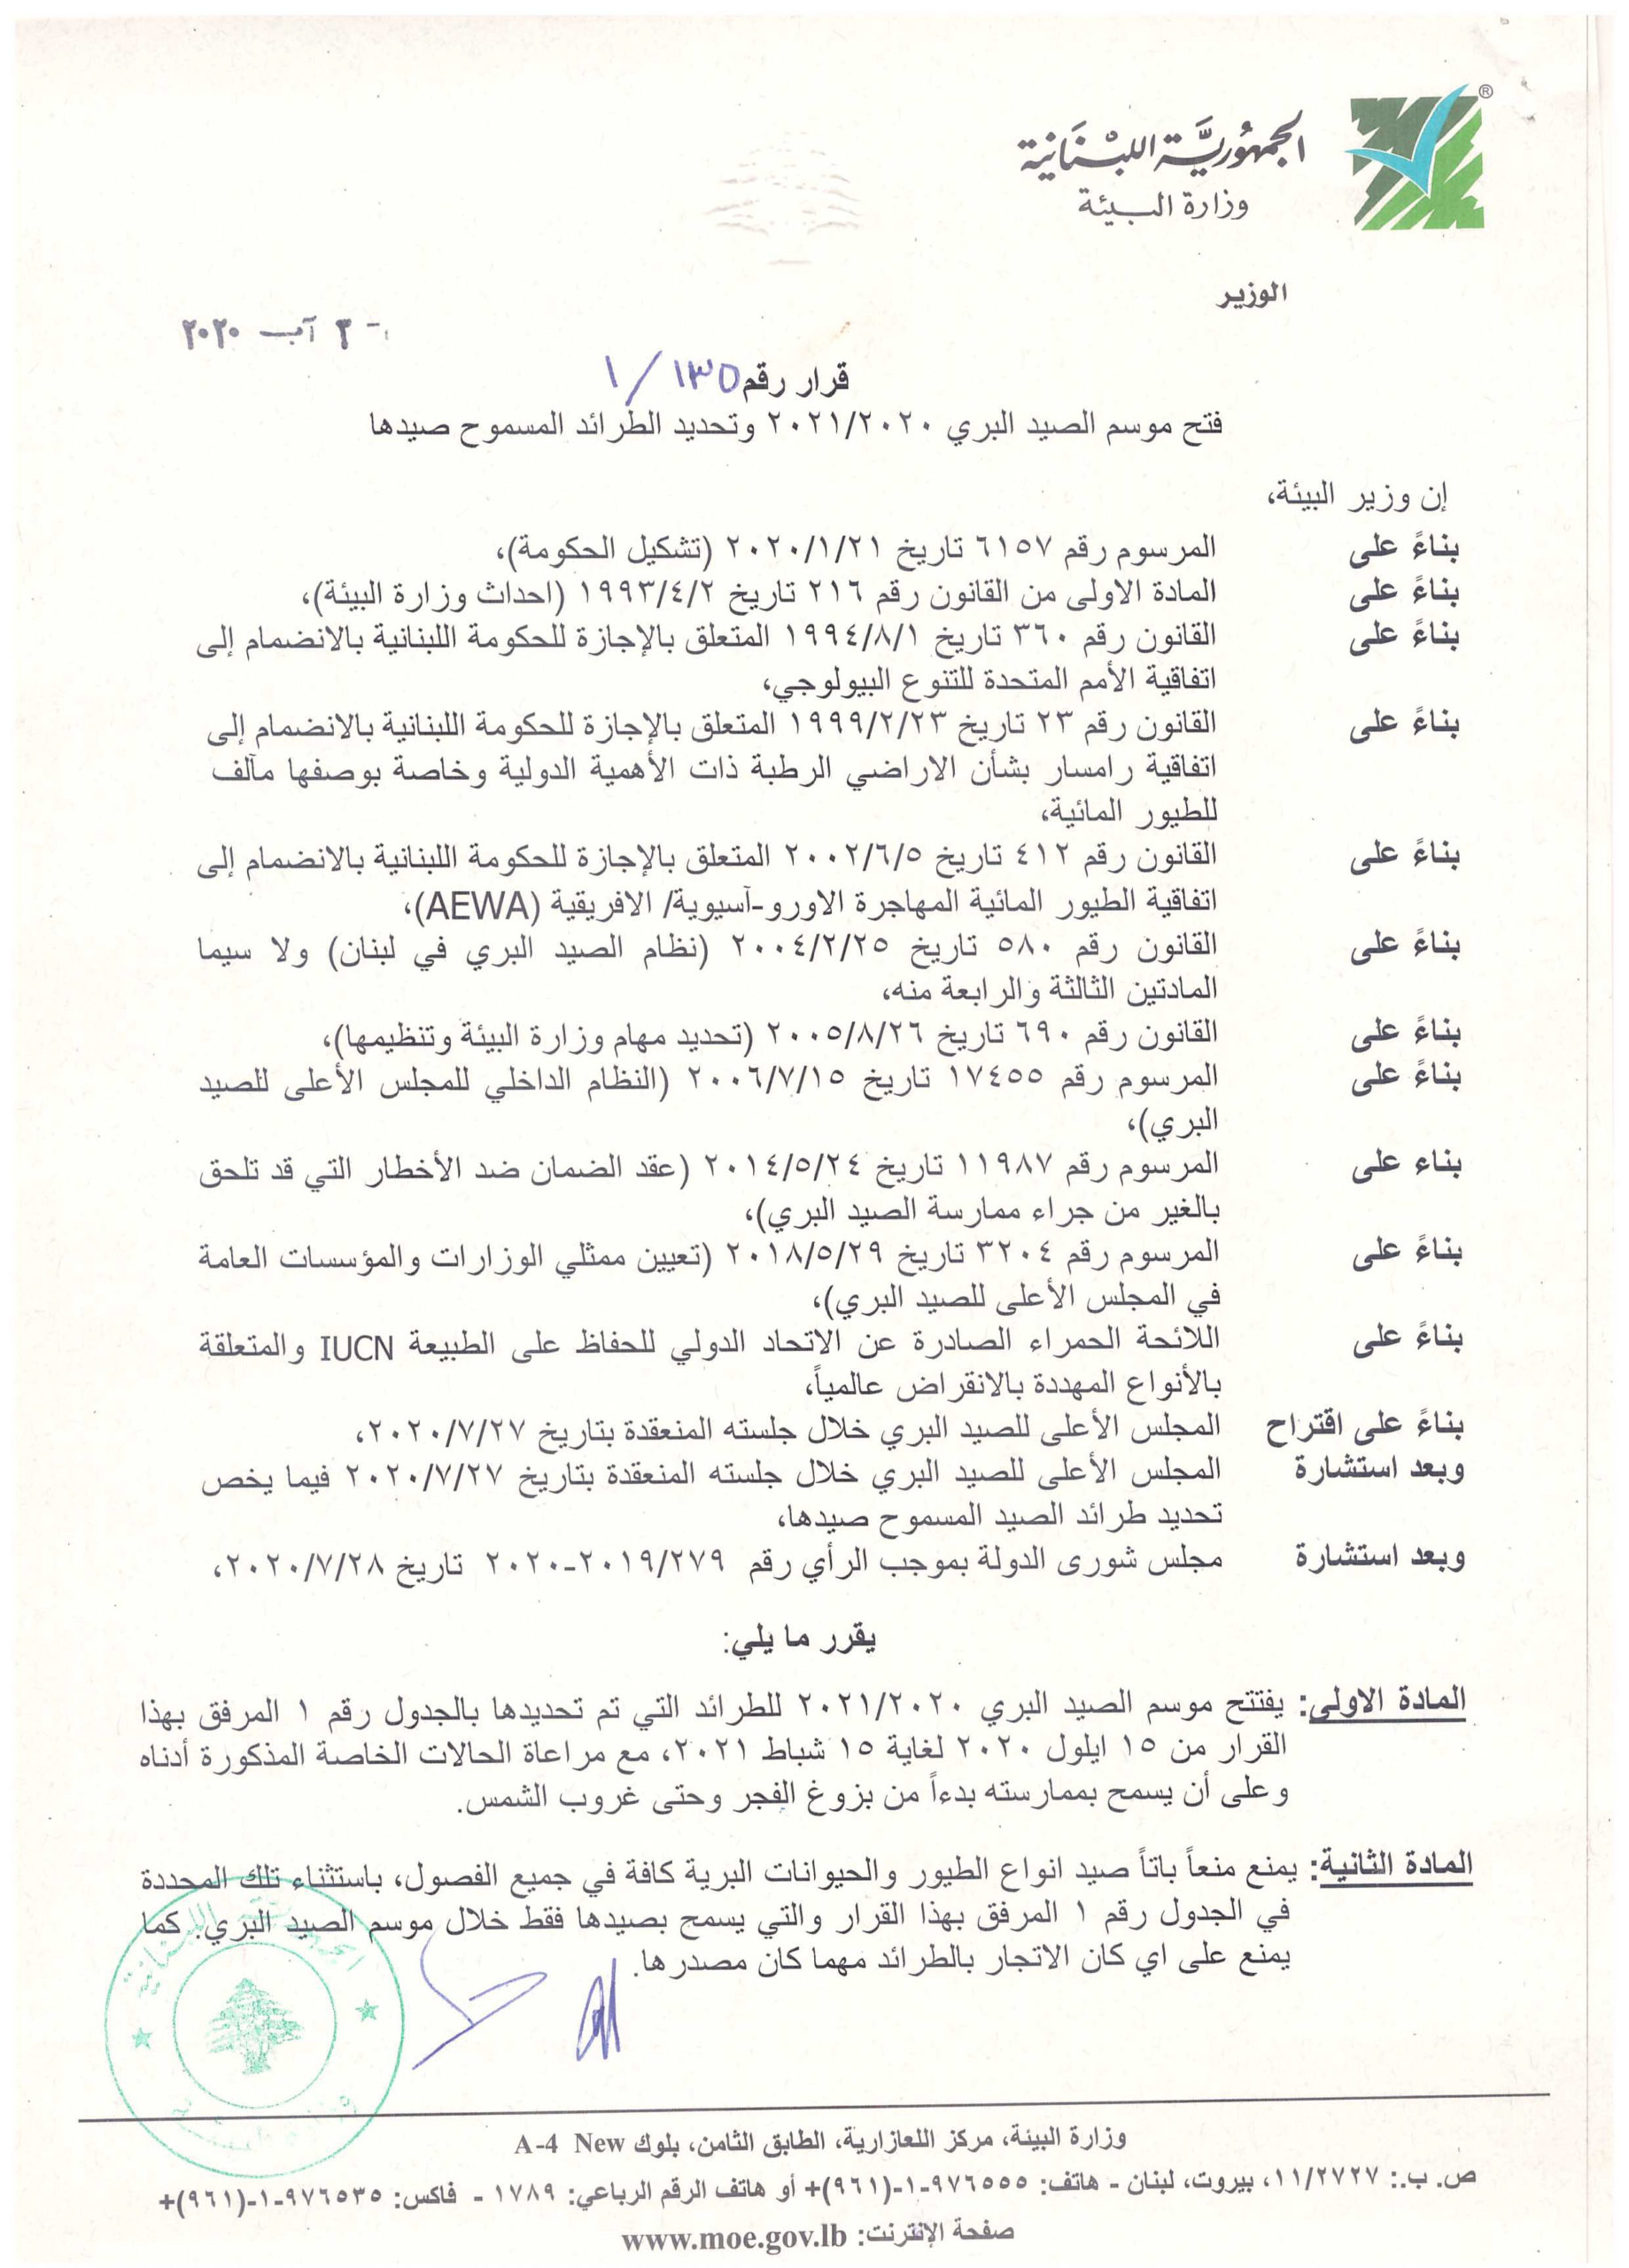 ®
الجمهورية اللبنانية
وزارة البيئة
الوزير
٣ آب ٢٠٢٠
قرار رقم ١٣٥ / ١
فتح موسم الصيد البري ٢٠٢١/٢٠٢٠ وتحديد الطرائد المسموح صيدها
إن وزير البيئة،
بناءً على المرسوم رقم ٦١٥٧ تاريخ ٢٠٢٠/١/٢١ (تشكيل الحكومة)،
بناءً على المادة الاولى من القانون رقم ٢١٦ تاريخ ١٩٩٣/٤/٢ (احداث وزارة البيئة)،
بناءً على القانون رقم ٣٦٠ تاريخ ١٩٩٤/٨/١ المتعلق بالإجازة للحكومة اللبنانية بالانضمام إلى
اتفاقية الأمم المتحدة للتنوع البيولوجي،
بناءً على القانون رقم ٢٣ تاريخ ١٩٩٩/٢/٢٣ المتعلق بالإجازة للحكومة اللبنانية بالانضمام إلى
اتفاقية رامسار بشأن الاراضي الرطبة ذات الأهمية الدولية وخاصة بوصفها مآلف
للطيور المائية،
بناءً على القانون رقم ٤١٢ تاريخ ٢٠٠٢/٦/٥ المتعلق بالإجازة للحكومة اللبنانية بالانضمام إلى
اتفاقية الطيور المائية المهاجرة الاورو-آسيوية/ الافريقية (AEWA)،
بناءً على القانون رقم ٥٨٠ تاريخ ٢٠٠٤/٢/٢٥ (نظام الصيد البري في لبنان) ولا سيما
المادتين الثالثة والرابعة منه،
بناءً على القانون رقم ٦٩٠ تاريخ ٢٠٠٥/٨/٢٦ (تحديد مهام وزارة البيئة وتنظيمها)،
بناءً على المرسوم رقم ١٧٤٥٥ تاريخ ٢٠٠٦/٧/١٥ (النظام الداخلي للمجلس الأعلى للصيد
البري)،
بناء على المرسوم رقم ١١٩٨٧ تاريخ ٢٠١٤/٥/٢٤ (عقد الضمان ضد الأخطار التي قد تلحق
بالغير من جراء ممارسة الصيد البري)،
بناءً على المرسوم رقم ٣٢٠٤ تاريخ ٢٠١٨/٥/٢٩ (تعيين ممثلي الوزارات والمؤسسات العامة
في المجلس الأعلى للصيد البري)،
بناءً على اللائحة الحمراء الصادرة عن الاتحاد الدولي للحفاظ على الطبيعة IUCN والمتعلقة
بالأنواع المهددة بالانقراض عالمياً،
بناءً على اقتراح المجلس الأعلى للصيد البري خلال جلسته المنعقدة بتاريخ ٢٠٢٠/٧/٢٧،
وبعد استشارة المجلس الأعلى للصيد البري خلال جلسته المنعقدة بتاريخ ٢٠٢٠/٧/٢٧ فيما يخص
تحديد طرائد الصيد المسموح صيدها،
وبعد استشارة مجلس شورى الدولة بموجب الرأي رقم ٢٠١٩/٢٧٩-٢٠٢٠ تاريخ ٢٠٢٠/٧/٢٨،
يقرر ما يلي:
المادة الاولى: يفتتح موسم الصيد البري ٢٠٢١/٢٠٢٠ للطرائد التي تم تحديدها بالجدول رقم ١ المرفق بهذا
القرار من ١٥ ايلول ٢٠٢٠ لغاية ١٥ شباط ٢٠٢١، مع مراعاة الحالات الخاصة المذكورة أدناه
وعلى أن يسمح بممارسته بدءاً من بزوغ الفجر وحتى غروب الشمس.
المادة الثانية: يمنع منعاً باتاً صيد انواع الطيور والحيوانات البرية كافة في جميع الفصول، باستثناء تلك المحددة
في الجدول رقم ١ المرفق بهذا القرار والتي يسمح بصيدها فقط خلال موسم الصيد البري. كما
يمنع على اي كان الاتجار بالطرائد مهما كان مصدرها.
وزارة البيئة، مركز اللعازارية، الطابق الثامن، بلوك A-4 New
ص. ب.: ١١/٢٧٢٧، بيروت، لبنان - هاتف: ٩٧٦٥٥٥-١-(٩٦١)+ أو هاتف الرقم الرباعي: ١٧٨٩ - فاكس: ٩٧٦٥٣٥-١-(٩٦١)+
صفحة الإنترنت: www.moe.gov.lb